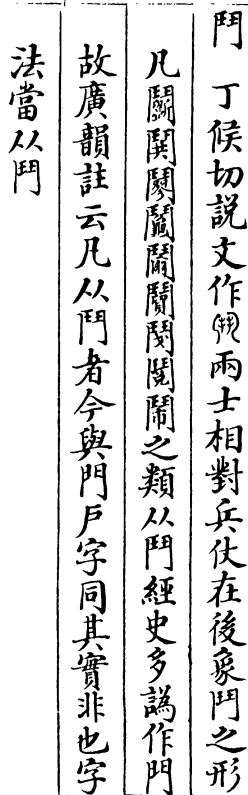 鬥 丁候切說文作兩士相對兵仗在後象鬥之形
凡鬭鬨鬮鬩鬧之類从鬥經史多譌作門
故廣韻註云凡从鬥者今與門戶字同其實非也字
法當从鬥